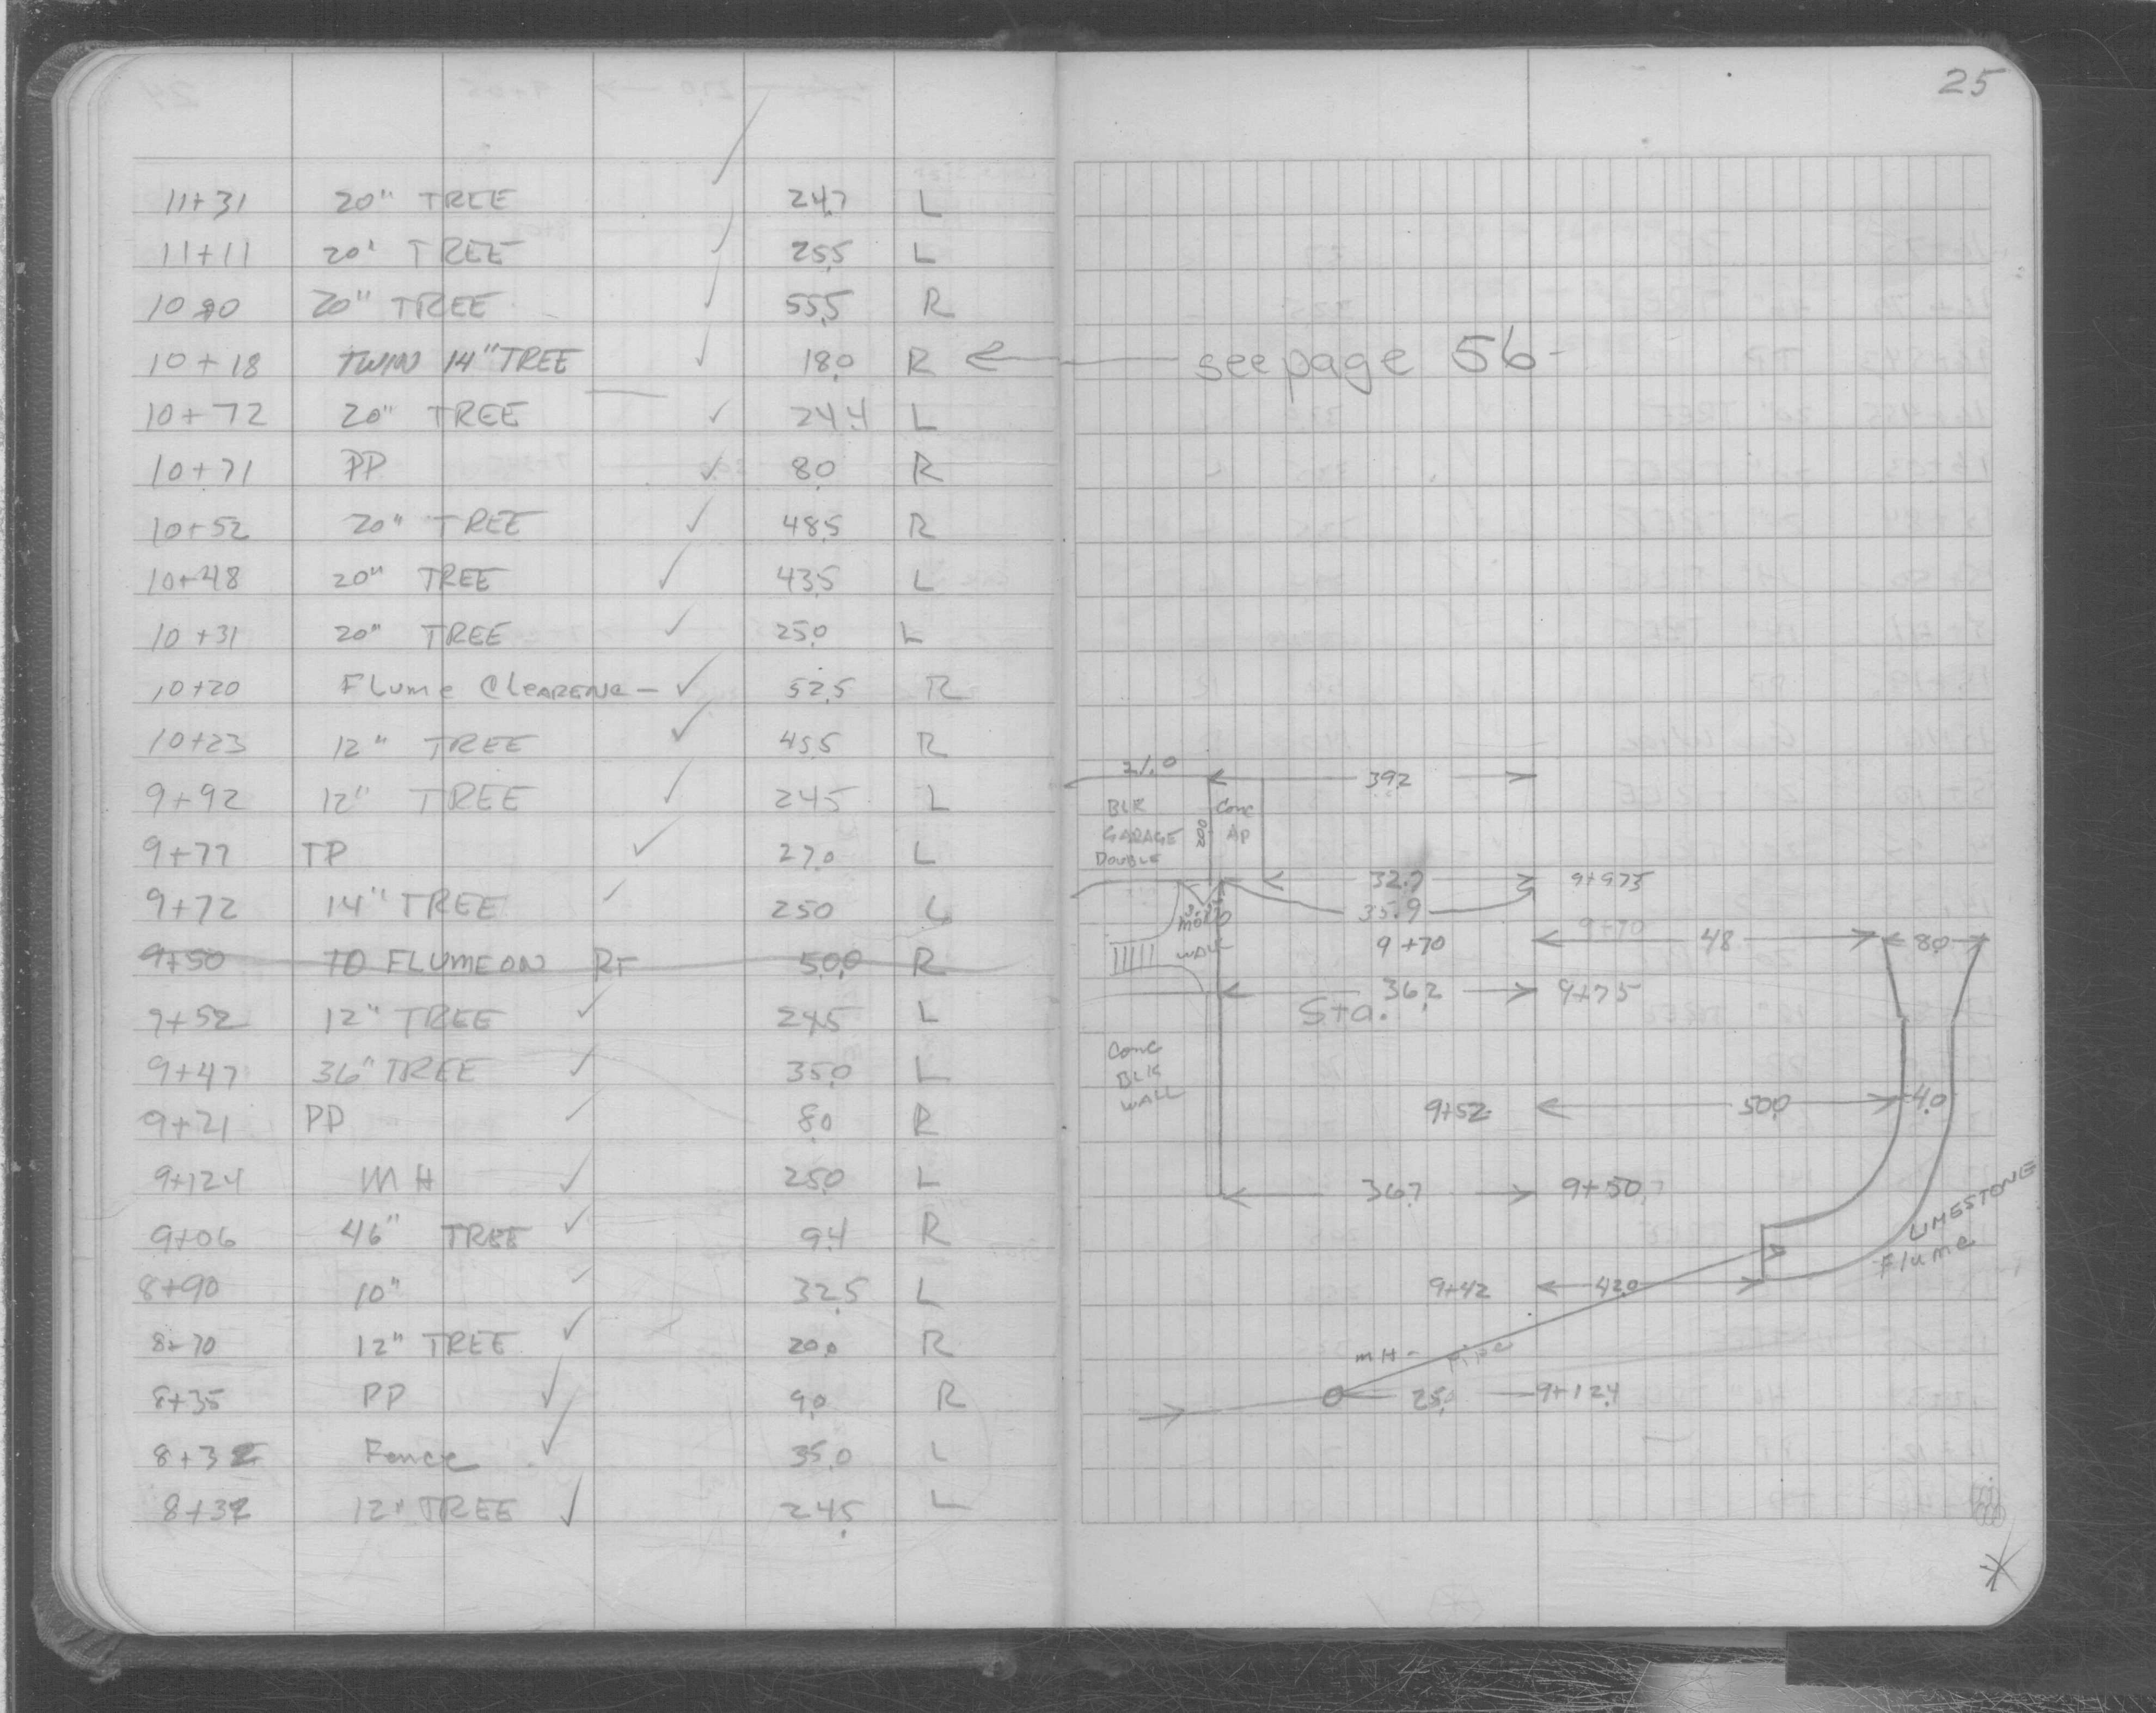 25
11+31 20" TREE 24.7 L
11+11 20' TREE 25.5 L
10 90 20" TREE 55.5 R
10+18 TWIN 14" TREE 18.0 R ← see page 56
10+72 20" TREE 24.4 L
10+71 PP 8.0 R
10+52 20" TREE 48.5 R
10+48 20" TREE 43.5 L
10+31 20" TREE 25.0 L
10+20 Flume Clearenc - 52.5 R
10+23 12" TREE 45.5 R
9+92 12" TREE 24.5 L
9+77 TP 27.0 L
9+72 14" TREE 250 L
9+50 TO FLUME ON RT 50.0 R
9+52 12" TREE 24.5 L
9+47 36" TREE 35.0 L
9+21 PP 8.0 R
9+124 MH 25.0 L
9+06 46" TREE 9.4 R
8+90 10" 32.5 L
8+70 12" TREE 20.0 R
8+35 PP 9.0 R
8+32 Fence 35.0 L
8+32 12" TREE 24.5 L
21.0 39.2
BLK GARAGE DOUBLE
Conc Ap
32.7 9+97.5
35.9
9+70 48 8.0
WALL
36.2 9+75
Sta.
Conc BLK WALL
9+52 50.0 4.0
36.7 9+50
LIMESTONE Flume
9+42 42.0
MH - Pipe
25. 9+12.4